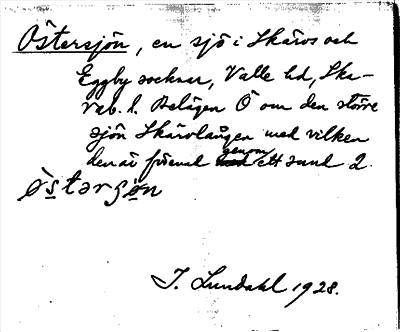 Östersjön, en sjö i Skärvs och
Eggby socknar, Valle hd, Ska-
rab. l. Belägen Ö om den större
sjön Skärvlången med vilken
den är förenad genom ett sund 2.
östərʃön
I. Lundahl 1928.